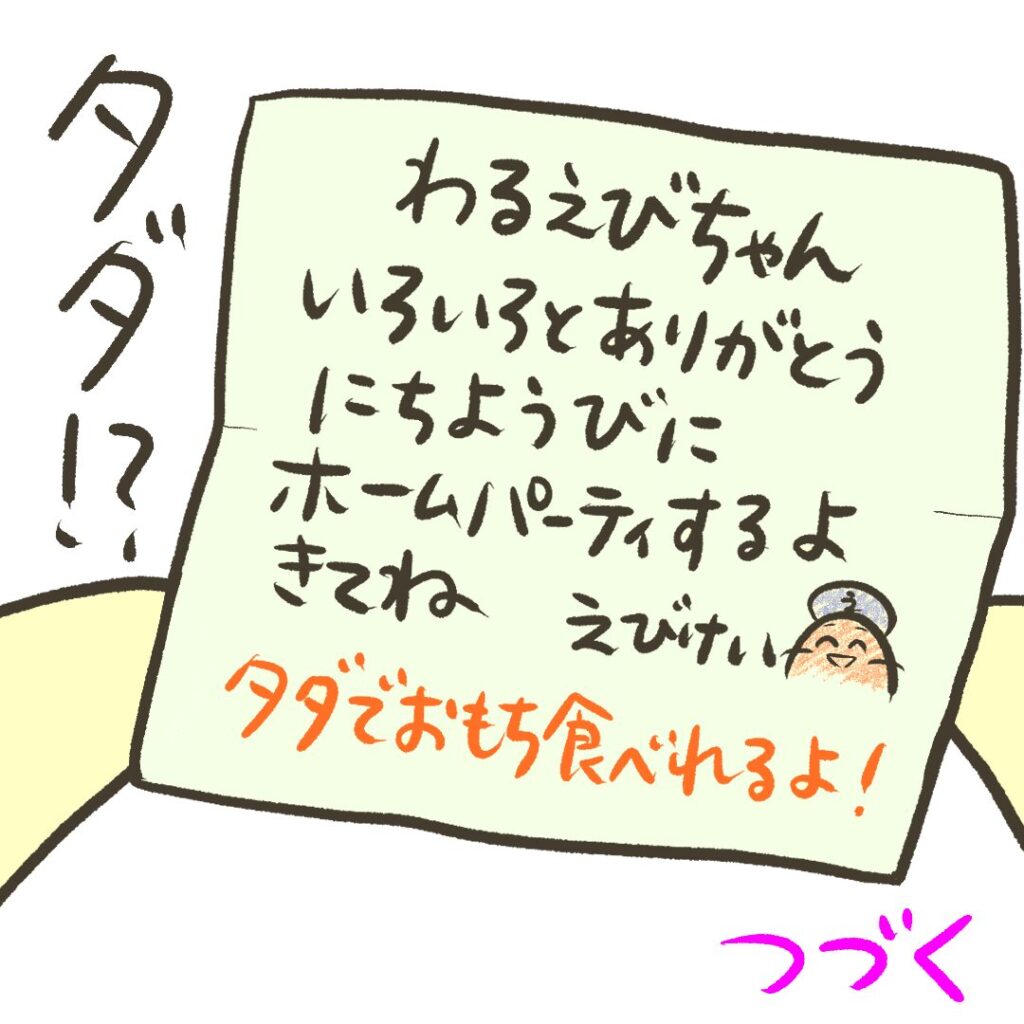 タダ!?
わるえびちゃん
いろいろとありがとう
にちようびに
ホームパーティするよ
きてね
えびけい
う
タダでおもち食べれるよ!
つづく